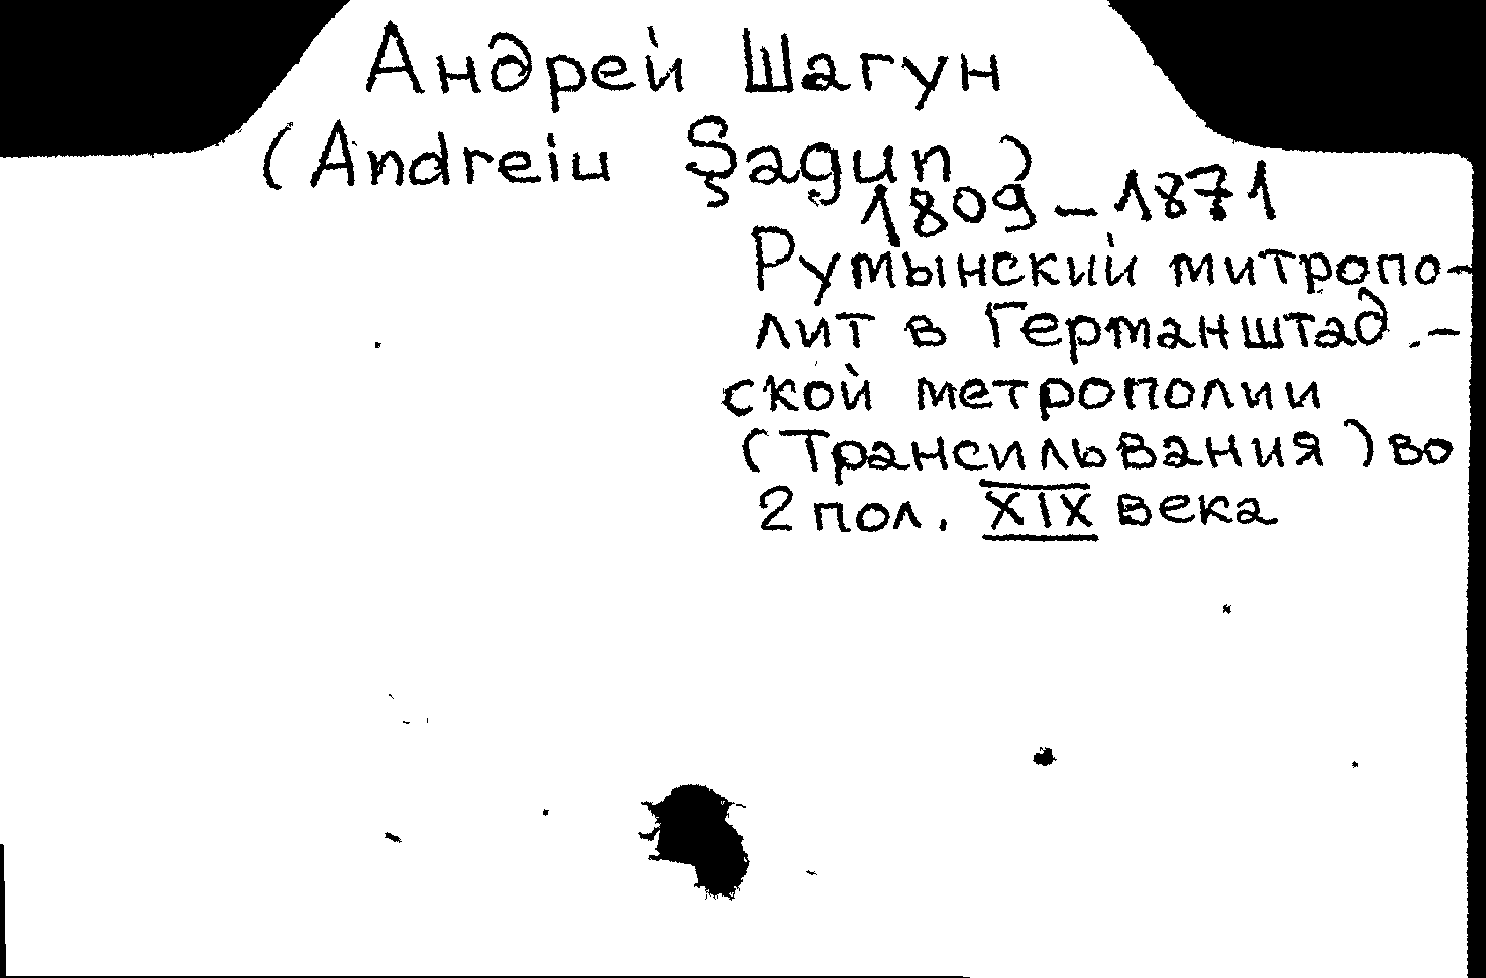 Андрей Шагун
(Andreiu Şagun)
1809-1871
Румынский митропо-
лит в Германштад.-
ской метрополии
(Трансильвания) во
2 пол. XIX века